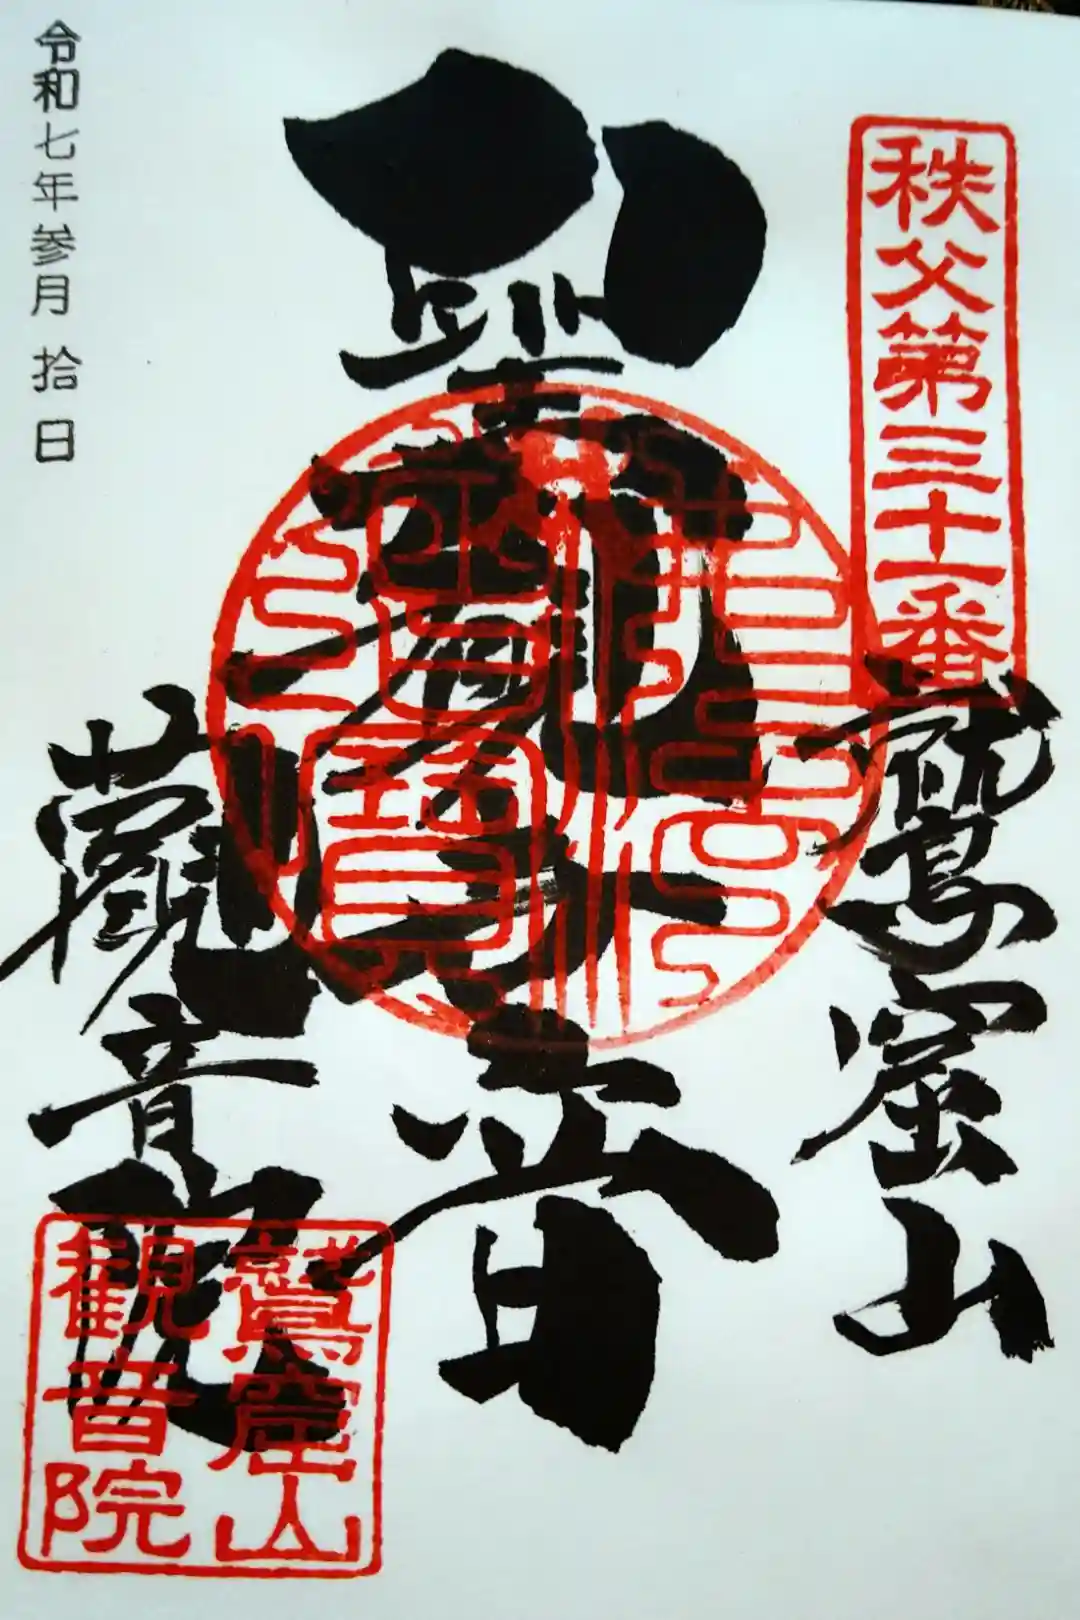 秩父第三十一番
鷲窟山
聖観音
観音院
鷲窟山
観音院
令和七年参月拾日